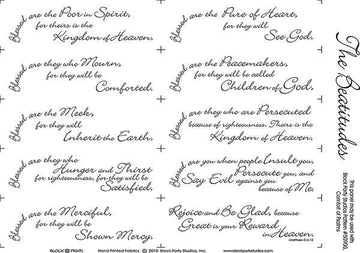 Blessed are the Poor in Spirit,
for theirs is the
Kingdom of Heaven.
Blessed are they who Mourn,
for they will be
Comforted.
Blessed are the Meek,
for they will
Inherit the Earth.
Blessed are they who
Hunger and Thirst
for righteousness, for they will be
Satisfied.
Blessed are the Merciful,
for they will be
Shown Mercy.
Blessed are the Pure of Heart,
for they will
See God.
Blessed are the Peacemakers,
for they will be called
Children of God.
Blessed are they who are Persecuted
because of righteousness, Theirs is the
Kingdom of Heaven.
Blessed are you when people Insult you,
Persecute you, and
Say Evil against you
because of Me.
Rejoice and Be Glad, because
Great is your Reward
in Heaven.
Matthew 5:3-12
The Beatitudes
This panel may be used with
Block Party Studios Pattern
Comfort of Psalms
BLOCK PRINTS Hand Printed Fabrics © 2010 Block Party Studios, Inc. www.blockpartystudios.com